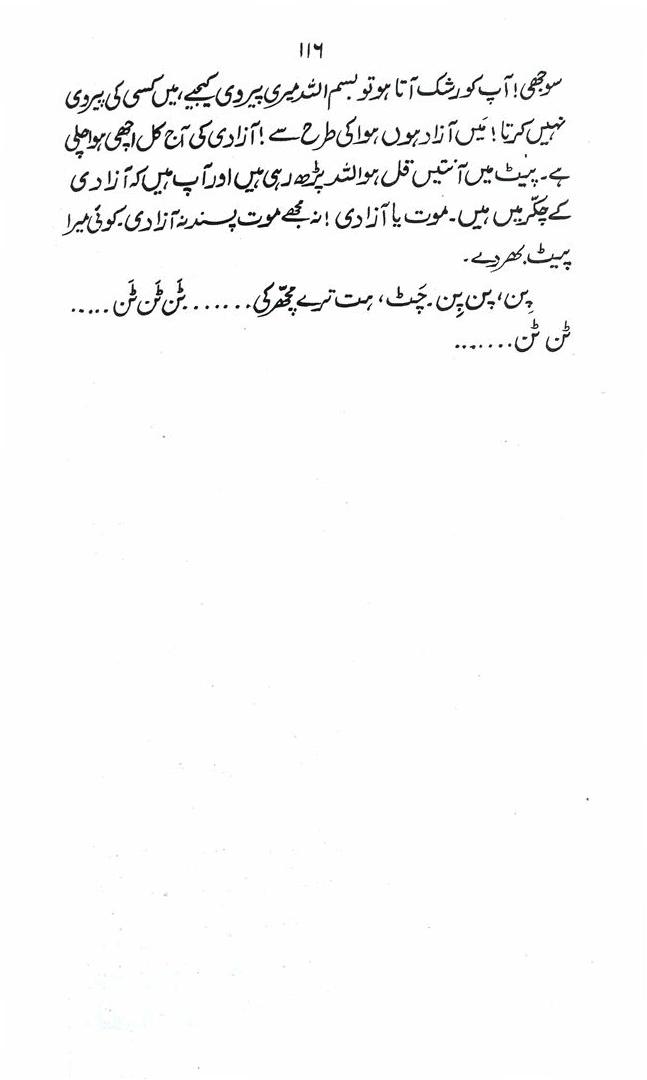 ۱۱۶
سوجھی! آپ کو رشک آتا ہو تو بسم اللہ میری پیروی کیجیے، میں کسی کی پیروی
نہیں کرتا! مَیں آزاد ہوں ہوا کی طرح سے! آزادی کی آج کل اچھی ہوا چلی
ہے۔ پیٹ میں آنتیں قل ہو اللہ پڑھ رہی ہیں اور آپ ہیں کہ آزادی
کے چکّر میں ہیں۔ موت یا آزادی! نہ مجھے موت پسند نہ آزادی۔ کوئی میرا
پیٹ بھر دے۔
پِن، پِن پِن۔ چَٹ، ہت ترے مچھّر کی۔۔۔۔۔۔۔ ٹَن ٹَن ٹَن ۔۔۔۔۔
ٹن ٹن ۔۔۔۔۔۔۔